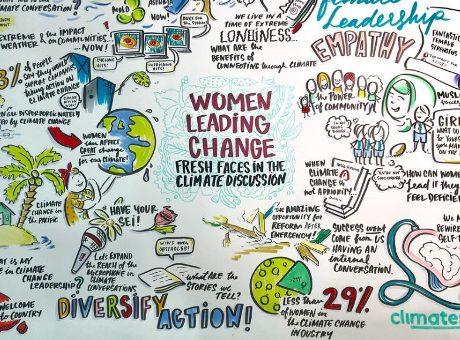 CLIMATE CONVERSATION!
ASTHMA!
WE LIVE IN A
TIME OF EXTREME
LONELINESS...
WHAT ARE THE
BENEFITS OF
CONNECTING through CLIMATE
Leadership
EMPATHY
FANTASTIC
FEMALE
EXTREME
WEATHER
the IMPACT
on COMMUNITIES...
NOW!
of PEOPLE
SAY they WOULD
SUPPORT COMPANIES
TAKING ACTION on
CLIMATE CHANGE
ARE DISPROPORTIONATELY
BY CLIMATE CHANGE
WOMEN
CAN AFFECT
GREAT CHANGE
for our CLIMATE!
WOMEN
LEADING
CHANGE
FRESH FACES IN THE
CLIMATE DISCUSSION
the POWER
of COMMUNITY
WHEN
CLIMATE
CHANGE is
not A PRIORITY!
GIRL
HOW CAN WOMEN
LEAD if they
FEEL DEFICIENT
CLIMATE
CHANGE in
the PACIFIC
HAVE YOUR
SEI!
the AMAZING
opportunity for
REFORM AFTER
EMERGENCY!
SUCCESS WON'T
COME from US
HAVING AN
internal
CONVERSATION.
WE
REWIRE
SELF
Let's EXPAND
the REACH of the
MICROPHONE in
CLIMATE
CONVERSATIONS
WINS over
OBSTACLES!
WHAT IS MY
in CLIMATE
CHANGE
LEADERSHIP?
what ARE the
STORIES we
TELL?
WELCOME
to COUNTRY
DIVERSIFY
ACTION!
LESS than
29%
of WOMEN in
the CLIMATE CHANGE
INDUSTRY
climate